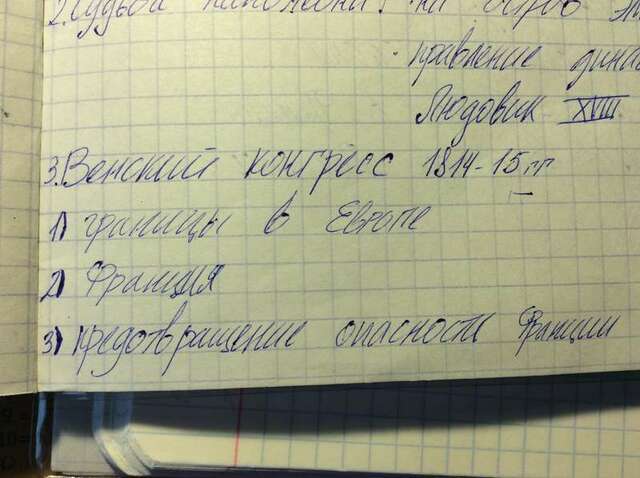 2. Судьба Наполеона: на остров
правление
Людовик XVIII
3. Венский конгресс 1814-15 гг
1) границы в Европе
2) Франция
3) предотвращение опасности Франции